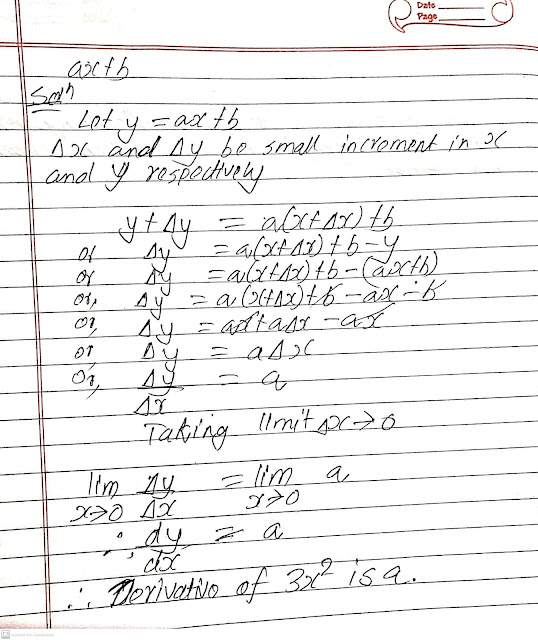 Date
Page
ax+b
Solⁿ
Let y = ax+b
Δx and Δy be small increment in x
and y respectively
y+Δy = a(x+Δx)+b
or Δy = a(x+Δx)+b-y
or Δy = a(x+Δx)+b-(ax+b)
or, Δy = a(x+Δx)+b-ax-b
or, Δy = ax+aΔx-ax
or Δy = aΔx
Or, Δy/Δx = a
Taking limit Δx→0
lim x→0 Δy/Δx = lim x→0 a
∴ dy/dx = a
∴ Derivative of 3x² is a.